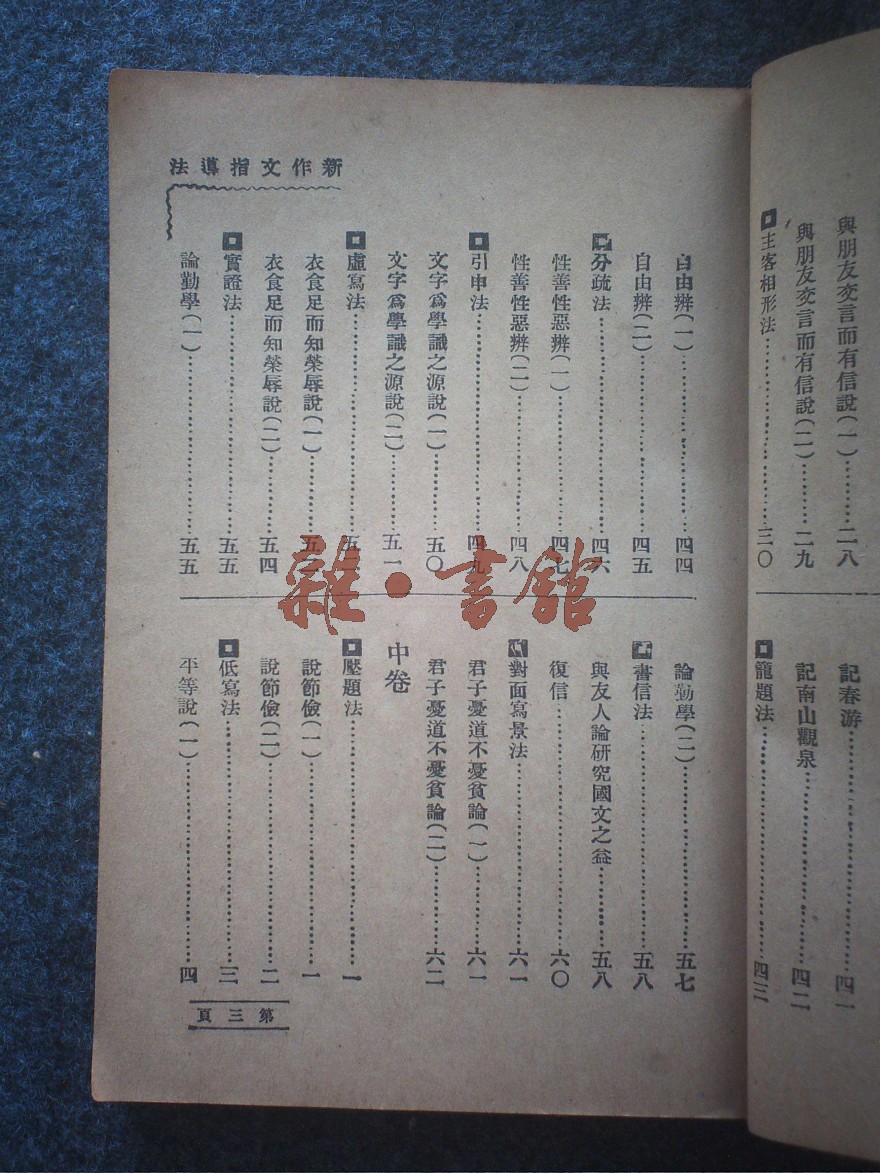 與朋友交言而有信說（一）………二八
與朋友交言而有信說（二）………二九
主客相形法………三〇
記春游………四一
記南山觀泉………四二
籠題法………四三
新作文指導法
自由辨（一）………四四
自由辨（二）………四五
分疏法………四六
性善性惡辨（一）………四七
性善性惡辨（二）………四八
引申法………四九
文字爲學識之源說（一）………五〇
文字爲學識之源說（二）………五一
虛寫法………五二
衣食足而知榮辱說（一）………五三
衣食足而知榮辱說（二）………五四
實證法………五五
論勤學（一）………五五
論勤學（二）………五七
書信法………五八
與友人論研究國文之益………五八
復信………六〇
對面寫景法………六一
君子憂道不憂貧論（一）………六一
君子憂道不憂貧論（二）………六二
中卷
壓題法………一
說節儉（一）………一
說節儉（二）………二
低寫法………三
平等說（一）………四
第三頁
雜·書館